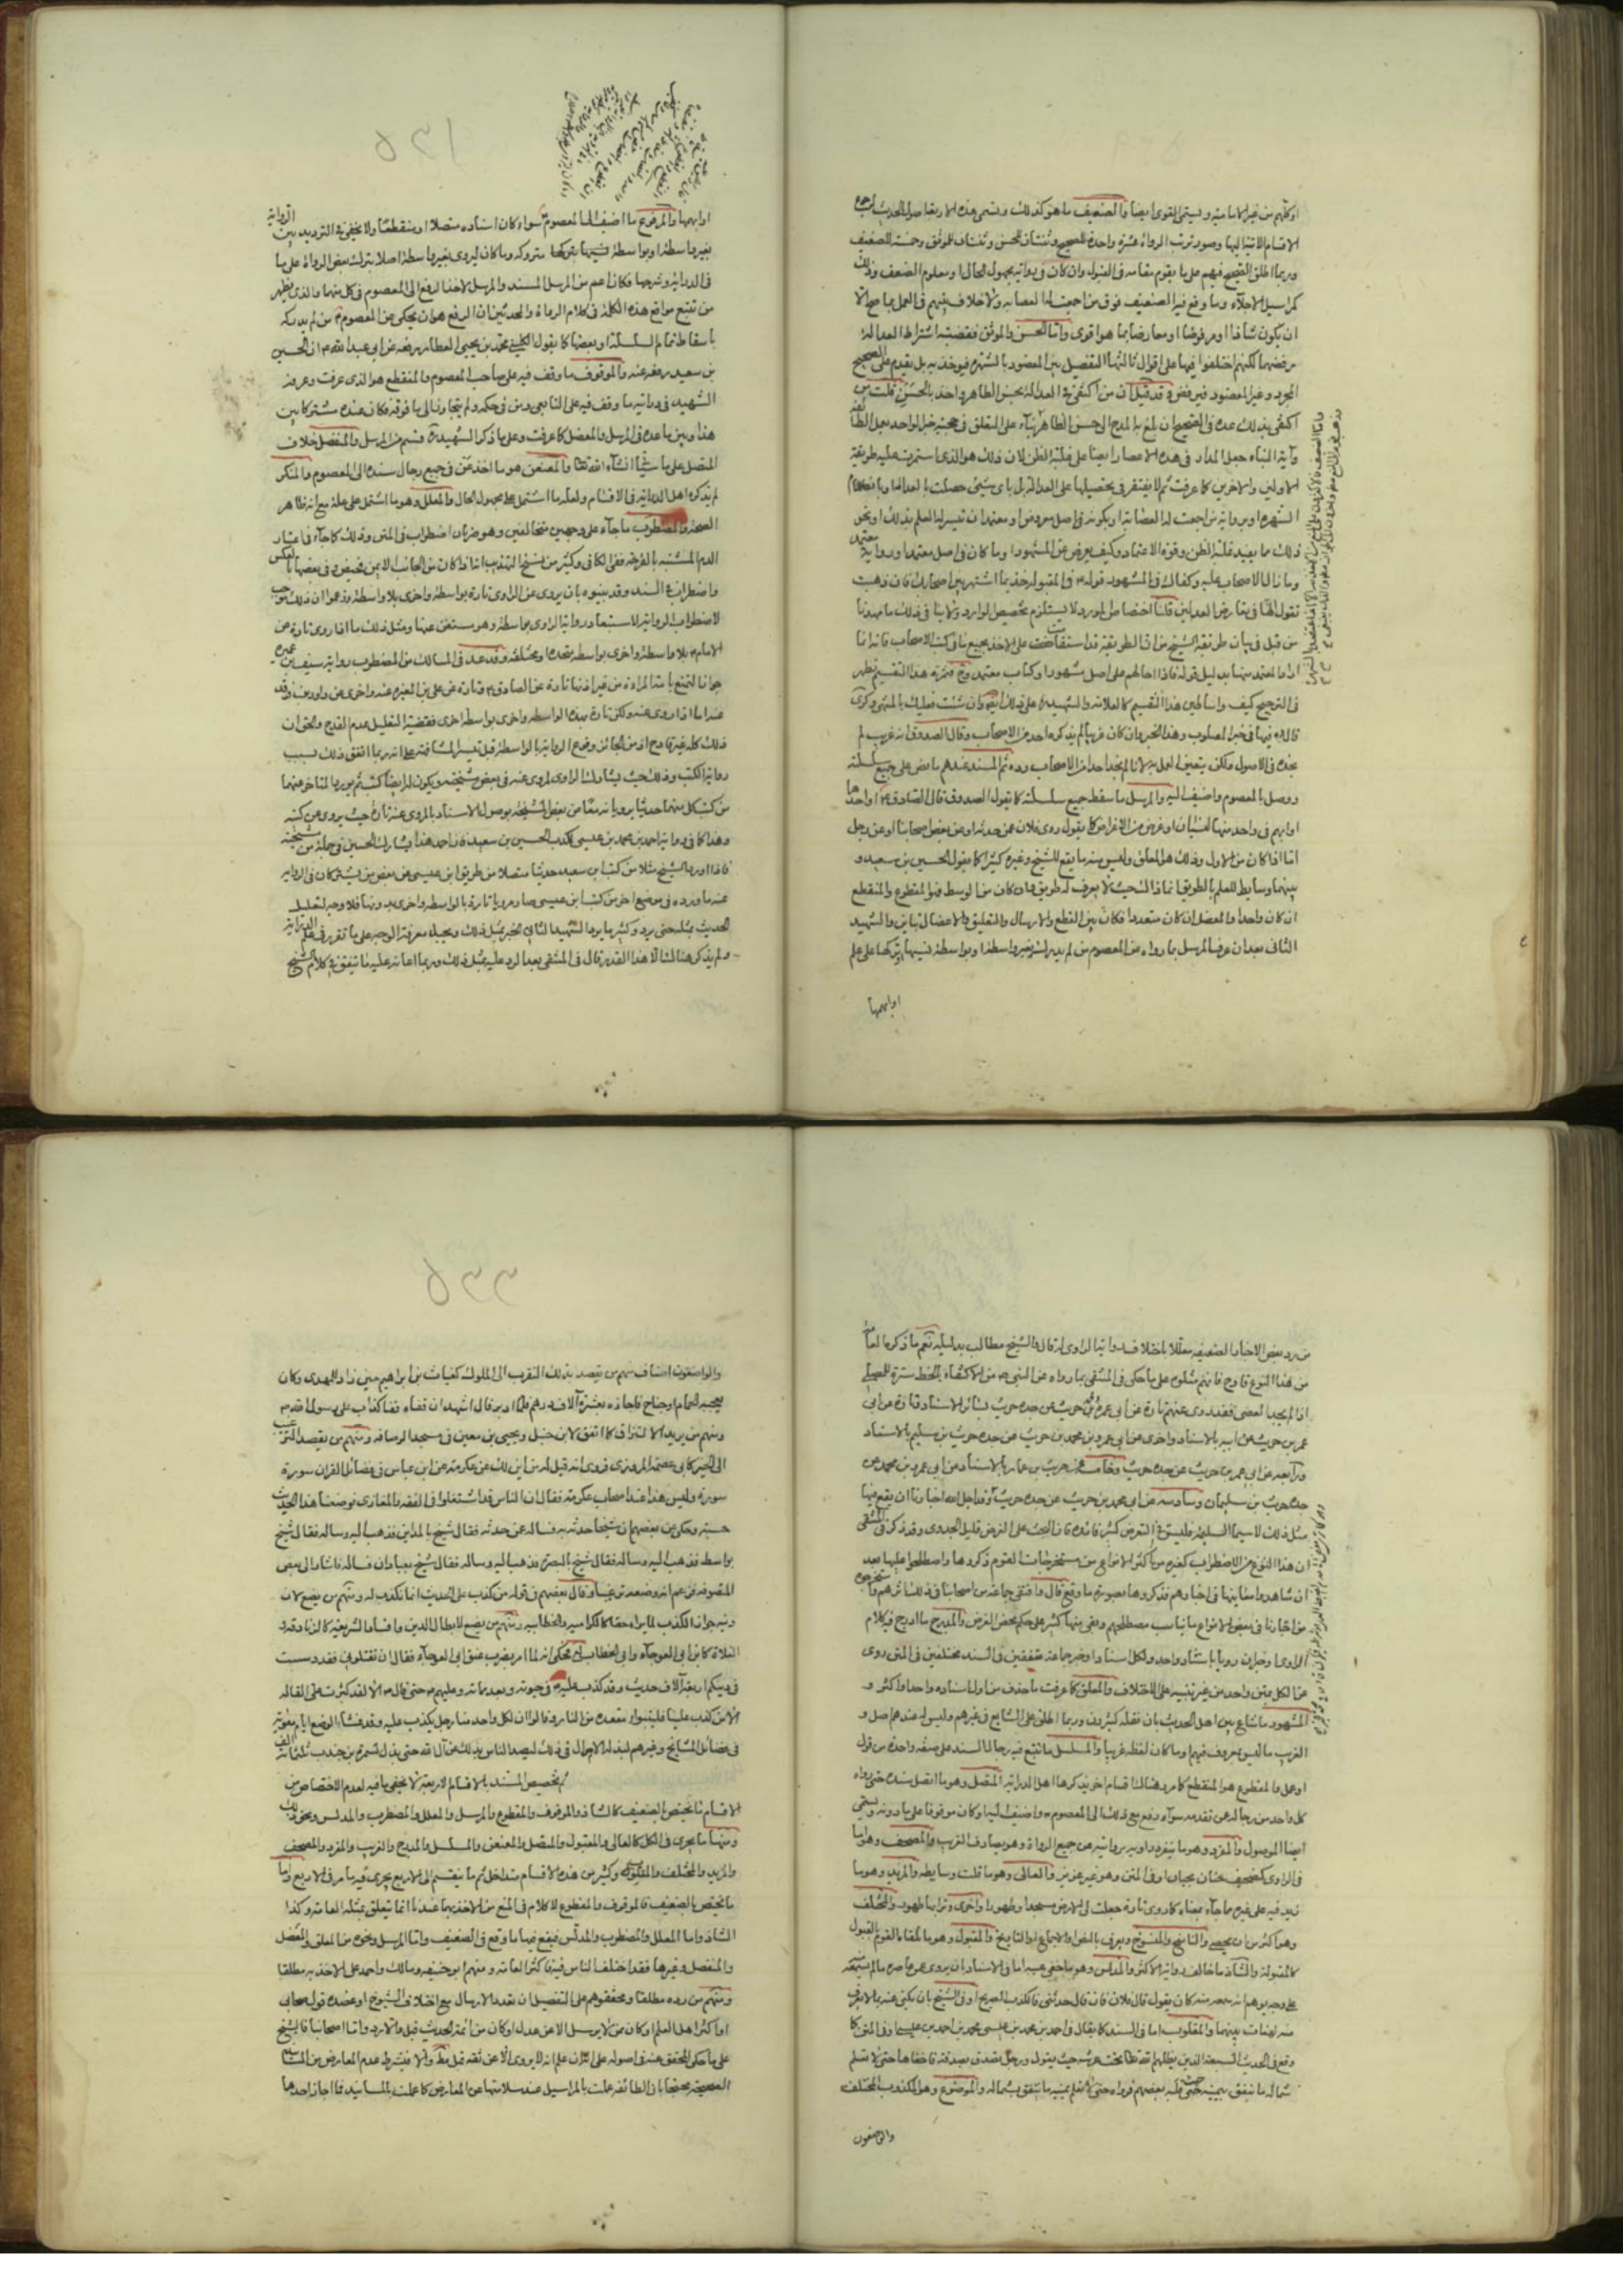 او كلهم من غير الامامية ويسمى القوى ايضا والضعيف ما هو كذلك وتسمى هذه الاربعة اصول الحديث
الاقسام الاتية اليها وصور ترتب الرواة عشرة واحدة للصحيح وثنتان للحسن وثنتان للموثق وخمسة للضعيف
وربما اطلق الصحيح فيهم على ما يقوم مقامه فى القبول وان كان فى رواية مجهول الحال او معلوم الضعف وذلك
كمراسيل الاجلاء وما وقع فيه الضعيف فوق من اجمعت له العصابة ولا خلاف بينهم فى العمل بما صح الا
ان يكون شاذا او مرفوضا او معارضا بما هو اقوى واما الحسن والموثق فقضية اشتراط العدالة
رفضهما لكنهم اختلفوا فيها على اقوال ثالثها التفصيل بين المعضود بالشهرة فيؤخذ به بل يقدم على الصحيح
المجرد وغير المعضود فيرفض وقد قيل ان من اكتفى فى العدالة بحسن الظاهر واخذ بالحسن قلت من
اكتفى بذلك عده فى الصحيح ان بلغ به المدح الى حسن الظاهر بناء على التعلق فى حجية خبر الواحد
الاولين والاخرين كما عرفت ثم لا يفتقر فى تحصيلها على العدالة بل باى شئ حصلت بالعدالة او بانضمام
الشهرة او برواية من اجمعت له العصابة او بكونه فى اصل معروض او معتمد ان تيسر له العلم بذلك او نحو
ذلك مما يفيد غلبة الظن وقوة الاعتماد وكيف يعرض عن المشهور او ما كان فى اصل معتمد او رواية معتمد
وما زال الاصحاب عليه وكفاك فى المشهور قوله فى المقبولة خذ بما اشتهر بين اصحابك فان ذهبت
تقول انها فى تعارض العدلين قلنا اختصاص المورد لا يستلزم تخصيص الوارد ولا ينافى ذلك ما مهدنا
من قبل فى بيان طريقة الشيخ من ان الطريقة قد استقامت على الاخذ بجميع ما فى كتب الاصحاب فانه انما
فى الترجيح كيف واساطين هذا التقسيم كالعلامة والشهيد على ذلك وان شئت فعليك بالمنتهى وذكرى
قال فيها فى خبر المصلوب وهذا الخبر وان كان غريبا لم يذكره احد من الاصحاب وقال الصدوق انه غريب لم
نجده فى الاصول ولكن يتعين العمل به لانا لم نجد احدا من الاصحاب رده ثم المسند عندهم ما نص على جميع سلسلته
ووصل بالمعصوم واضيف اليه والمرسل ما سقط جميع سلسلته كما يقول الصدوق قال الصادق او احدها
او ابهم فى واحد منها لنسيان او غرض من الاغراض كما يقول روى فلان عمن حدثه او عن بعض اصحابنا او عن رجل
اما اذا كان من الاول وذلك هو المعلق وليس منه ما يقع للشيخ وغيره كثيرا كما يقول الحسين بن سعيد و
بينهما وسايط للعلم بالطريق اما اذا كان بحيث لا يعرف له طريق وان كان من الوسط فهو المقطوع والمنقطع
ان كان واحدا والمعضل ان كان متعددا فكان بين القطع والارسال والتعليق والاعضال تباين والشهيد
الثانى بعد ان عرف المرسل بما رواه عن المعصوم من لم يدركه بغير واسطة او بواسطة نسيها او تركها على علم
او ابهمها
او ابهمها والمرفوع ما اضيف الى المعصوم سواء كان اسناده متصلا او منقطعا ولا يخفى فى الترديد بين الرواية
بغير واسطة او بواسطة نسيها او تركها متروكة وما كان ليروى بغير واسطة اصلا بترك بعض الرواة على ما
فى الدراية وشرحها فكان اعم من المرسل المسند والمرسل لاخذ الرفع الى المعصوم فى كل منهما والذى يظهر
من تتبع مواقع هذه الكلمة فى كلام الرواة والمحدثين ان الرفع هو ان يحكى عن المعصوم من لم يدركه
باسقاط تمام السلسلة او بعضها كما يقول الكلينى محمد بن يحيى العطار رفعه عن ابى عبد الله او الحسين
بن سعيد رفعه عنه والموقوف ما وقف فيه على صاحب المعصوم والمنقطع هو الذى عرفت وعرفه
الشهيد فى درايته بما وقف فيه على التابعى ومن فى حكمه ولم يتجاوز الى ما فوقه فكان عنده مشتركا بين
هذا وبين ما عده فى المرسل والمعضل كما عرفت وعلى ما ذكر الشهيد قسم من المرسل والمنفصل خلاف
المتصل على ما سيأتى انشاء الله تعالى والمعنعن هو ما اخذ عن فى جميع رجال سنده الى المعصوم والمنكر
لم يذكره اهل الدراية فى الاقسام ولعله ما اشتمل على مجهول الحال والمعلل وهو ما اشتمل على علة مع انه ظاهر
الصحة والمضطرب ما جاء على وجهين متخالفين وهو ضربان اضطراب فى المتن وذلك كما جاء فى اعتبار
الدم المشتبه بالقرحة ففى الكافى وكثير من نسخ التهذيب انه اذا كان من الجانب الايمن فحيض وفى بعضها بالعكس
واضطراب فى السند وقد بينوه بان يروى عن الراوى تارة بواسطة واخرى بلا واسطة وزعموا ان ذلك يوجب
لاضطراب الرواية لاستبعاد رواية الراوى بواسطة وهو مستغن عنها ومثل ذلك ما اذا روى تارة عن
الامام بلا واسطة واخرى بواسطة متحدة او مختلفة وقد عد فى المسالك من المضطرب رواية سيف بن عميرة
جواز التمتع بامة المراة من غير اذنها تارة عن الصادق وتارة عن على بن المغيرة عنه واخرى عن داود بن فرقد
عنه اما اذا روى عنه ولكن تارة بهذه الواسطة واخرى بواسطة اخرى فقضية التعليل عدم القدح والحق ان
ذلك كله غير قادح اذ من الجائز وقوع الرواية بالواسطة قبل تيسر المشافهة على انه ربما اتفق ذلك بسبب
رواية الكتب وذلك حيث يشارك الراوى المروى عنه فى بعض مشيخته ويكون لهما ايضا كتب ثم يورد المتاخر عنهما
من كتب كل منهما حديثا يرويانه معا من بعض المشيخة بوصول الاسناد بالمروى عنه تارة حيث يروى عن كتبه
وهذا كما فى رواية احمد بن محمد بن عيسى لكتب الحسين بن سعيد فان احمد هذا يشارك الحسين فى جملة من مشيخته
فاذا اورد الشيخ مثلا من كتب ابن سعيد حديثا متصلا من طريق ابن عيسى عن بعض من يشتركان فى الرواية
عنه ما ورده فى موضع اخر من كتب ابن عيسى صار مرويا تارة بالواسطة واخرى بدونها فلا وجه لتعليل
الحديث بمثله حتى يرد وكثيرا ما يرد الشهيد الثانى الخبر بمثل ذلك
ولم يذكر هنالك الا هذا القدر قال فى المنتقى بعد الرد عليه بمثل ذلك وربما اعانه عليه ما يتفق فى كلام الشيخ
من رد بعض الاخبار الضعيفة معللا باختلاف رواية الراوى له قال والشيخ مطالب بدليله نعم ما ذكره العامة
من هذا النوع قادح فانهم مثلوه على ما حكى فى المنتقى بما رواه عن النبى من الاكتفاء بالخط سترة للمصلى
اذا لم يجد العصى فقد روى عنهم تارة عن ابى عمرو بن حريث عن جده حريث بسائر الاسناد وتارة عن ابى
عمرو بن حريث عن ابيه بالاسناد واخرى عن ابى عمرو بن محمد بن حريث عن جده حريث بن سليم بالاسناد
ورابعة عن ابى عمرو بن حريث عن جده حريث وخامسة عن حريث بن عمار بالاسناد عن ابى عمرو بن محمد عن
جده حريث بن سليمان وسادسة عن ابى محمد بن حريث عن جده حريث وقد اجل الله اخبارنا ان يقع فيها
مثل ذلك لا سيما السليمة فليس فى التعرض كثير فائدة فان البحث على الفرض قليل الجدوى وقد ذكر فى المنتقى
ان هذا النوع من الاضطراب كغيره من اكثر الانواع من مستخرجات القوم ذكروها واصطلحوا عليها بعد
ان شاهدوا معانيها فى اخبارهم فذكروها بصورة ما وقع قال واقتفى جماعة من اصحابنا فى ذلك اثرهم
من اخبارنا فى بعض الانواع ما يناسب مصطلحهم وبقى منها كثير على حكم محض الفرض والمدرج ما ادرج فيه كلام
الراوى او خبران رويا باسناد واحد ولكل اسناد او خبر جماعة متفقين فى السند مختلفين فى المتن روى
عن الكل بمتن واحد من غير تنبيه على الاختلاف والمعلق كما عرفت ما حذف من اول اسناده واحد او اكثر و
المشهور ما شاع بين اهل الحديث بان نقله كثيرون وربما اطلق على الشايع فى غيرهم وليس له عندهم اصل و
الغريب ما ليس بمعروف فيهم وما كان لفظه غريبا والمسلسل ما تتبع فيه رجال السند على صفة واحدة من قول
او فعل والمقطوع هو المنقطع كما مر وهنالك اقسام اخر يذكرها اهل الدراية المتصل وهو ما اتصل سنده حتى رواه
كل واحد من رجاله عن تقدمه سواء رفع مع ذلك الى المعصوم واضيف اليه او كان موقوفا على ما دونه ويسمى
ايضا الموصول والمفرد وهو ما ينفرد راويه بروايته عن جميع الرواة وهو يصادف الغريب والمصحف وهو اما
فى الراوى كتصحيف حنان بحيان او فى المتن وهو غير عزيز والعالى وهو ما قلت وسايطه والمزيد وهو ما
زيد فيه على غيره ما جاء بمعناه كما روى تارة جعلت لى الارض مسجدا وطهورا واخرى وترابها طهور والمختلف
وهو اكثر من ان يحصى والناسخ والمنسوخ ويعرف بالنص او الاجماع او التاريخ والمقبول وهو ما تلقاه القوم بالقبول
كالمقبولة والشاذ ما خالف رواية الاكثر والمدلس وهو ما خفى عيبه اما فى الاسناد بان يروى عن عاصره ما لم يسمعه
على وجه يوهم انه سمعه منه كان يقول قال فلان فان قال حدثنى فالكذب الصريح او فى الشيخ بان يكنى عنه بما لا يعرف
والمقلوب اما فى السند كما يقال فى احمد بن محمد بن عيسى محمد بن احمد بن عيسى او فى المتن كما
وقع فى الحديث السبعة الذين يظلهم الله تعالى تحت عرشه حيث يقول ورجل تصدق بصدقة فاخفاها حتى لا تعلم
شماله ما تنفق يمينه حيث قلبه بعضهم فرواه حتى لا تعلم يمينه ما تنفق شماله والموضوع وهو المكذوب المختلف
والواضعون
والواضعون اصناف منهم من يقصد بذلك التقرب الى الملوك كغياث بن ابراهيم حين زاد للمهدى وكان
يعجبه الحمام او جناح فاجازه بعشرة آلاف درهم فلما ادبر قال اشهد ان قفاه قفا كذاب على رسول الله
ومنهم من يريد الارتزاق كما اتفق لابن حنبل ويحيى بن معين فى مسجد الرصافة ومنهم من يقصد الترغيب
الى الخير كابى عصمة المروزى فروى انه قيل له من اين لك عن عكرمة عن ابن عباس فى فضائل القران سورة
سورة وليس هذا عند اصحاب عكرمة فقال ان الناس قد اشتغلوا فى الفقه والمغازى فوضعت هذا الحديث
حسبة وحكى عن بعضهم ان شيخا حدثه به فساله عن حدثه فقال شيخ بالمداين فذهب اليه وساله فقال شيخ
بواسط فذهب اليه وساله فقال شيخ بالبصرة فذهب اليه وساله فقال شيخ بعبادان فساله فاشار الى بعض
المتصوفة فزعم انه وضعه ترغيبا وقال بعضهم فى قوله من كذب على الحديث انما نكذب له ومنهم من يضع لان
دينه جواز الكذب لما يراه حقا كالكرامية والخطابية ومنهم من يضع لابطال الدين وافساد الشريعة كالزنادقة و
الغلاة كابن ابى العوجاء وابى الخطاب حكى انه لما امر بضرب عنق ابى العوجاء فقال ان تقتلونى فقد دسست
فى دينكم اربعة آلاف حديث وقد كذب عليه فى حيوته وبعد مماته وعليهم حتى قال الا لقد كثرت على القالة
الا من كذب علينا فليتبوء مقعده من النار وقالوا ان لكل واحد منا رجل يكذب عليه وقد فشا الوضع ايام معوية
فى فضائل المشايخ وغيرهم لبذله الاموال فى ذلك ليصد الناس بذلك عن آل الله حتى بذل لسمرة بن جندب ثلثمائة الف
ثم تخصيص المسند بالاقسام الاربعة لا يخفى ما فيه لعدم الاختصاص من
الاقسام ما يختص الضعيف كالشاذ والموقوف والمقطوع والمرسل والمعلل والمضطرب والمدلس ونحو ذلك
ومنها ما يجرى فى الكل كالعالى والمقبول والمتصل والمعنعن والمسلسل والمدرج والغريب والمفرد والمصحف
والمزيد والمختلف والمقلوب وكثير من هذه الاقسام متداخل ثم ما ينقسم الى الاربع يجرى فيه ما مر فى الاربع واما
ما يختص بالضعيف فالموقوف والمقطوع لا كلام فى المنع من الاخذ بهما عندنا انما يتعلق بمثله العامة وكذا
الشاذ واما المعلل والمضطرب والمدلس فيقع فيها ما وقع فى الضعيف واما المرسل ونحوه من المعلق والمعضل
والمنفصل وغيرها فقد اختلف الناس فيه فاكثر العامة ومنهم ابو حنيفة ومالك واحمد على الاخذ به مطلقا
ومنهم من رده مطلقا ومحققوهم على التفصيل ان تعدد الارسال مع اختلاف الشيوخ او عضده قول صحابى
او اكثر اهل العلم او كان ممن لا يرسل الا عن عدل او كان من ائمة الحديث قبل والا رد واما اصحابنا فالشيخ
على ما حكى المحقق عنه فى اصوله على ان من علم انه لا يروى الا عن ثقة قبل والا فيشترط عدم المعارض من المسانيد
الصحيحة محتجا بان الطائفة عملت بالمراسيل عند سلامتها عن المعارض كما عملت بالمسانيد فما اجاز احدها